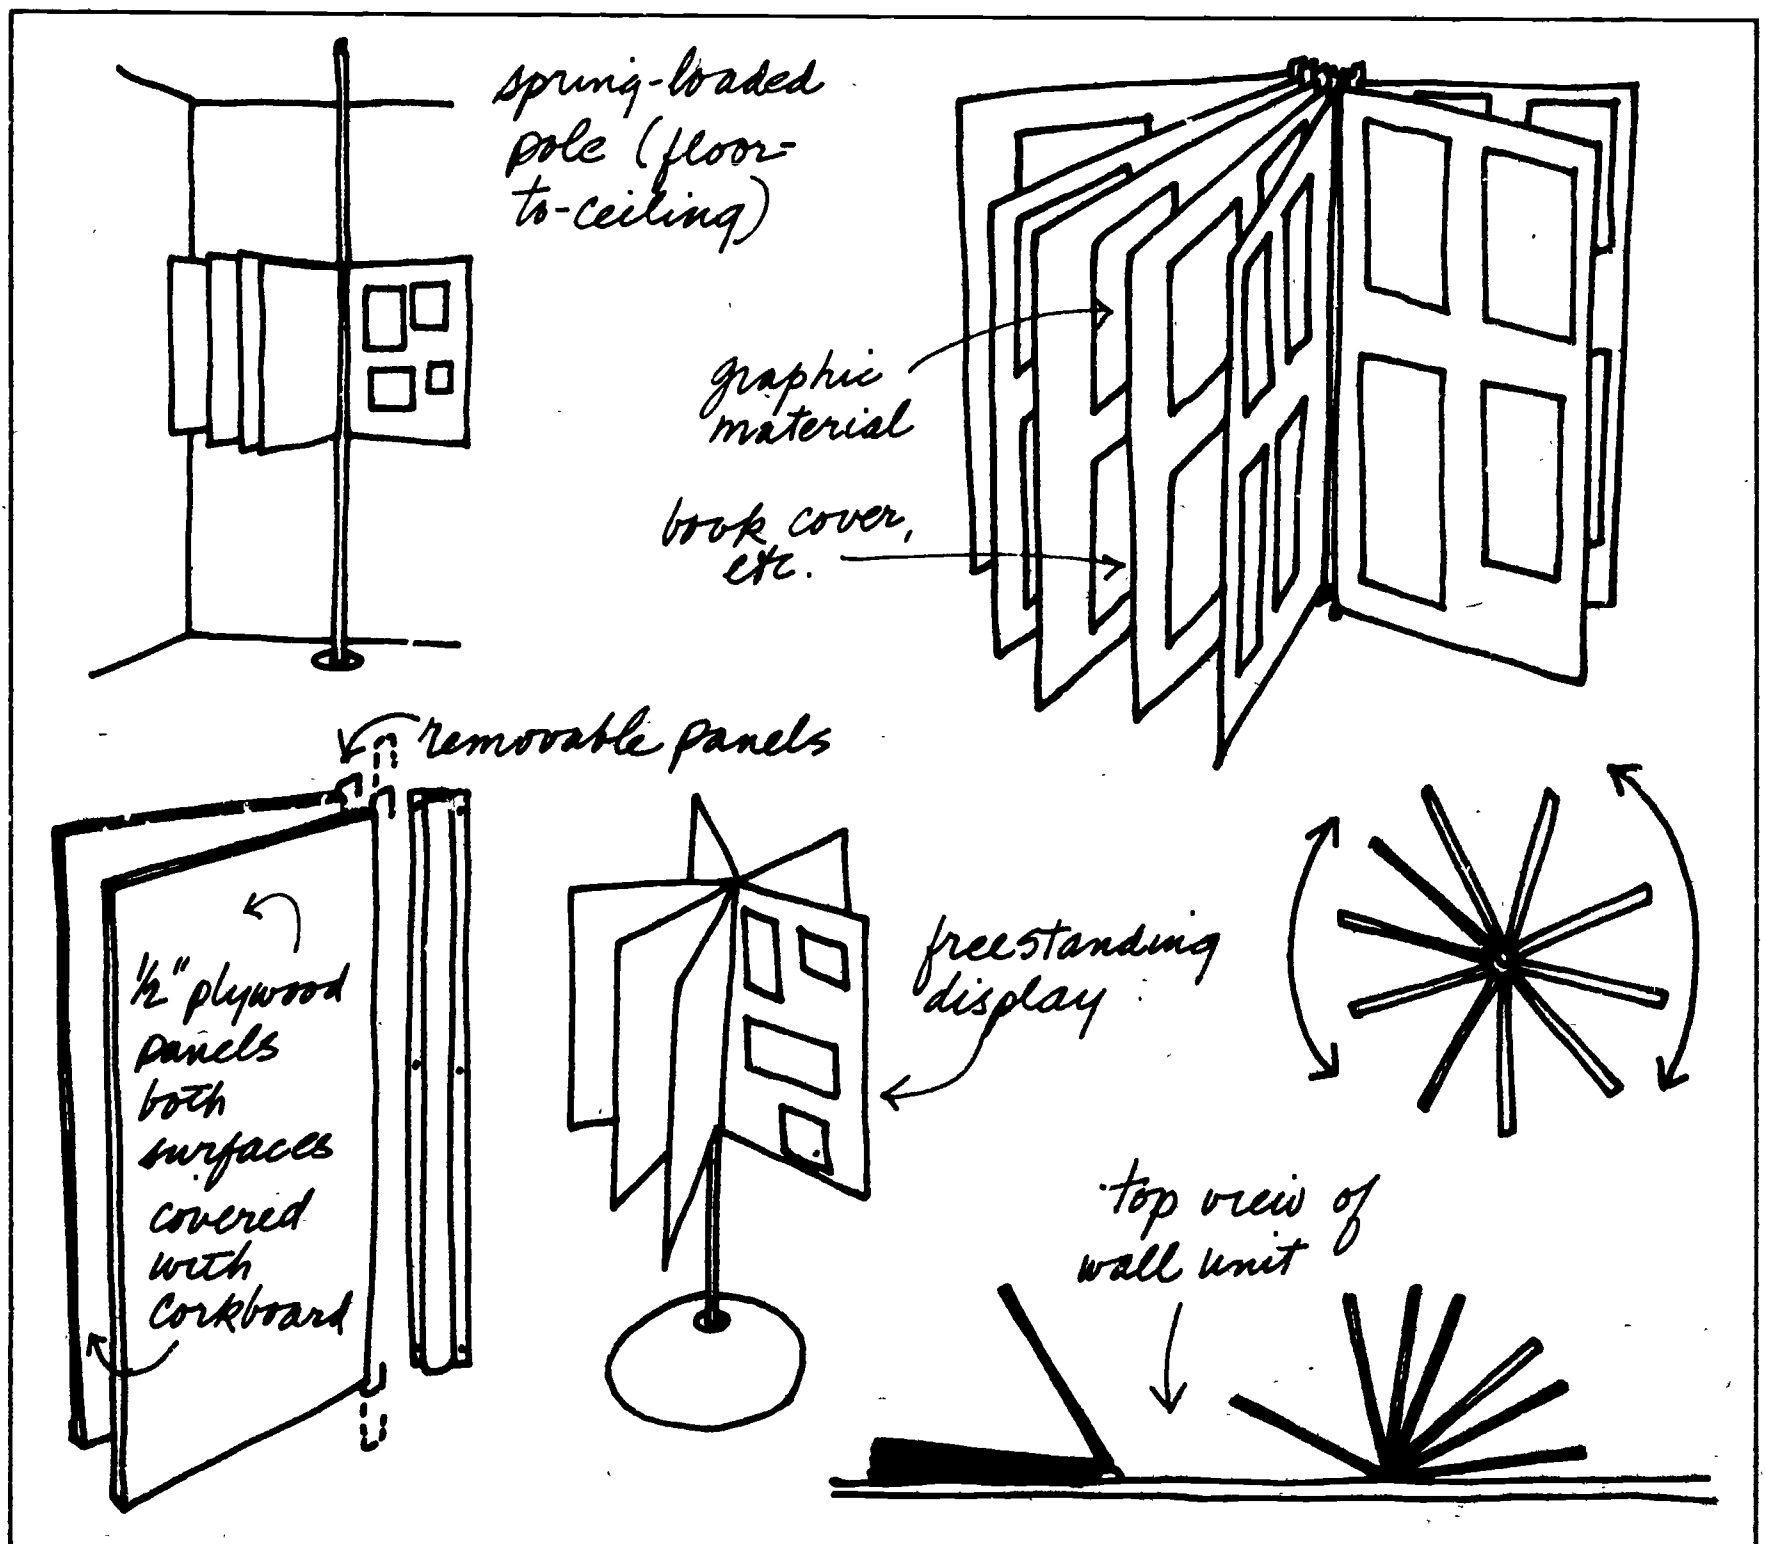 spring-loaded
pole (floor-
to-ceiling)
graphic
material
book cover,
etc.
removable panels
1/2" plywood
panels
both
surfaces
covered
with
corkboard
freestanding
display
top view of
wall unit